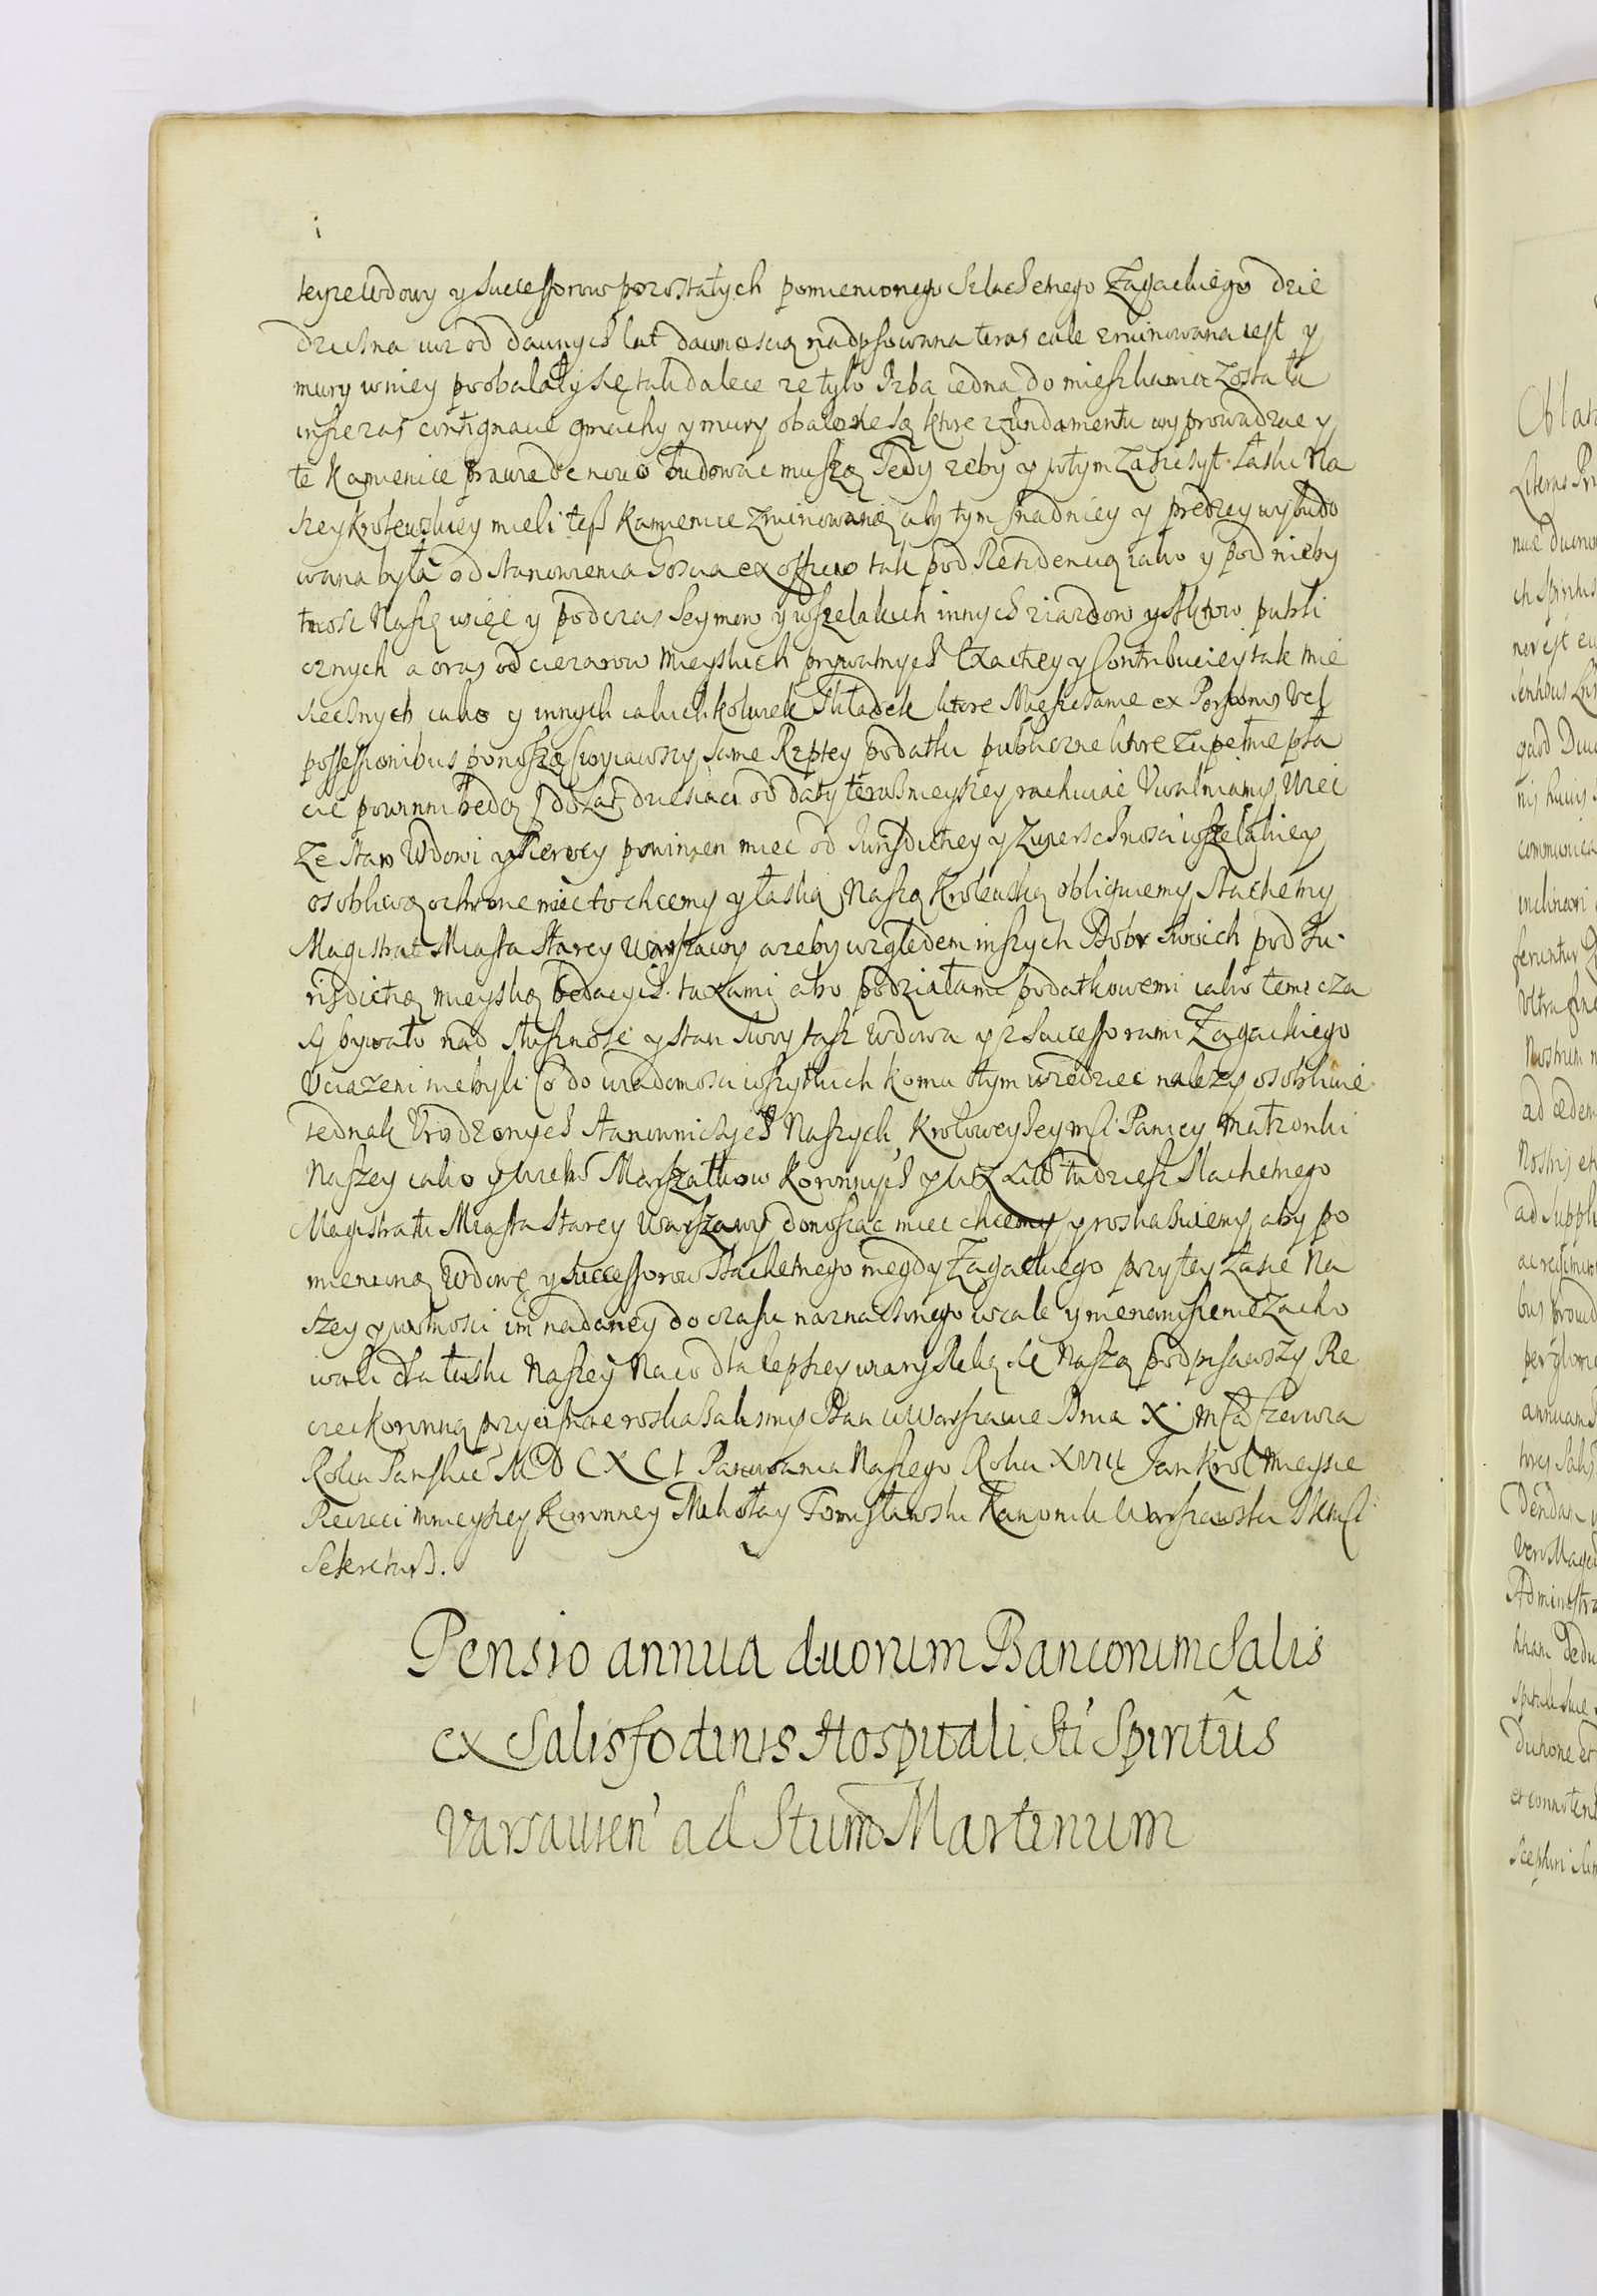 teyze Wdowy y Successorow pozostałych pomienionego Szlachetnego Zagackiego dzie
dziczna iuz od dawnych lat dawnoscią nadpsowana teras cale zruinowana iest y
mury wniey poobalały się tak dalece ze tylo Izba iedna do mieszkania została
insze zas contignacie gmachy y mury obalone są ktore z fundamentu wyprowadzac y
te Kamienice prawie de novo budowac muszą Tedy zeby y wtym Zaszczyt Łaski Na
szey Krolewskiey mieli tesz Kamienice Zruinowaną aby tym snadniey y prędzey wybudo
wana była od Stanowienia Goscia ex officio tak pod Residencyą iako y pod nieby
tnosc Naszę więc y podczas Seymow y wszelakich innych ziazdow y Aktow publi
cznych a oras od ciezarow Mieyskich prywatnych Exactiey y Contribuciey tak mie
siecznych iako y innych iakichkolwiek Składek ktore Miescisame ex Personis vel
possessionibus ponoszą (wyiąwszy same Rzptey podatki publiczne ktore zupełnie pła
cic powinni będą) do Lat dziesiąci od daty terasnieyszey rachuiąc Uwalniamy, Wiec
Ze stan Wdowi y Sierocy powinien miec od Jurisdictiey y Zwierzchnosci wszelakiey
osobliwą ochronę miec to chcemy y łaską Naszą Krolewską obliguiemy Slachetny
Magistrat Miasta Starey Warszawy azeby względem inszych Dobr Swoich pod Ju
risdictią mieyską będących taxami abo podziałami podatkowemi iako temi cza
sy bywało nad słusznosc y stan Swoy tasz Wdowa y z Successorami Zagackiego
Uciązeni niebyli Co do wiadomosci wszytkich komu otym wiedziec nalezy osobliwie
iednak Urodzonych Stanowniczych Naszych, Krolowey Jeymsci Paniey Małzonki
Naszey iako y Wielm Marszałkow Koronnych y WX Litt tudziesz Slachetnego
Magistratu Miasta Starey Warszawy donosząc miec chcemy y roskasuiemy aby po
mienioną Wdowę y Successorow Slachetnego niegdy Zagackiego przy tey Łasce Na
szey y wolnosci im nadaney do czasu naznaczonego wcale y nienaruszenie Zacho
wali dla łaski Naszey Na co dla lepszey wiary Ręką się Naszą podpisawszy Pie
czec Koronną przycisnąc roskasalismy Dan w Warszawie Dnia X. Msca Czerwca
Roku Panskie MDCXCI Panowania Naszego Roku XVIII Jan Krol Mieysce
Pieczeci mnieyszey Koronney Mikołay Tomisławski Kanonik Warszawski JKMsci
Sekretarz.
Pensio annua duorum Banconum Salis
ex Salisfodinis Hospitali Sti Spiritûs
Varsavien' ad Stum Martinum